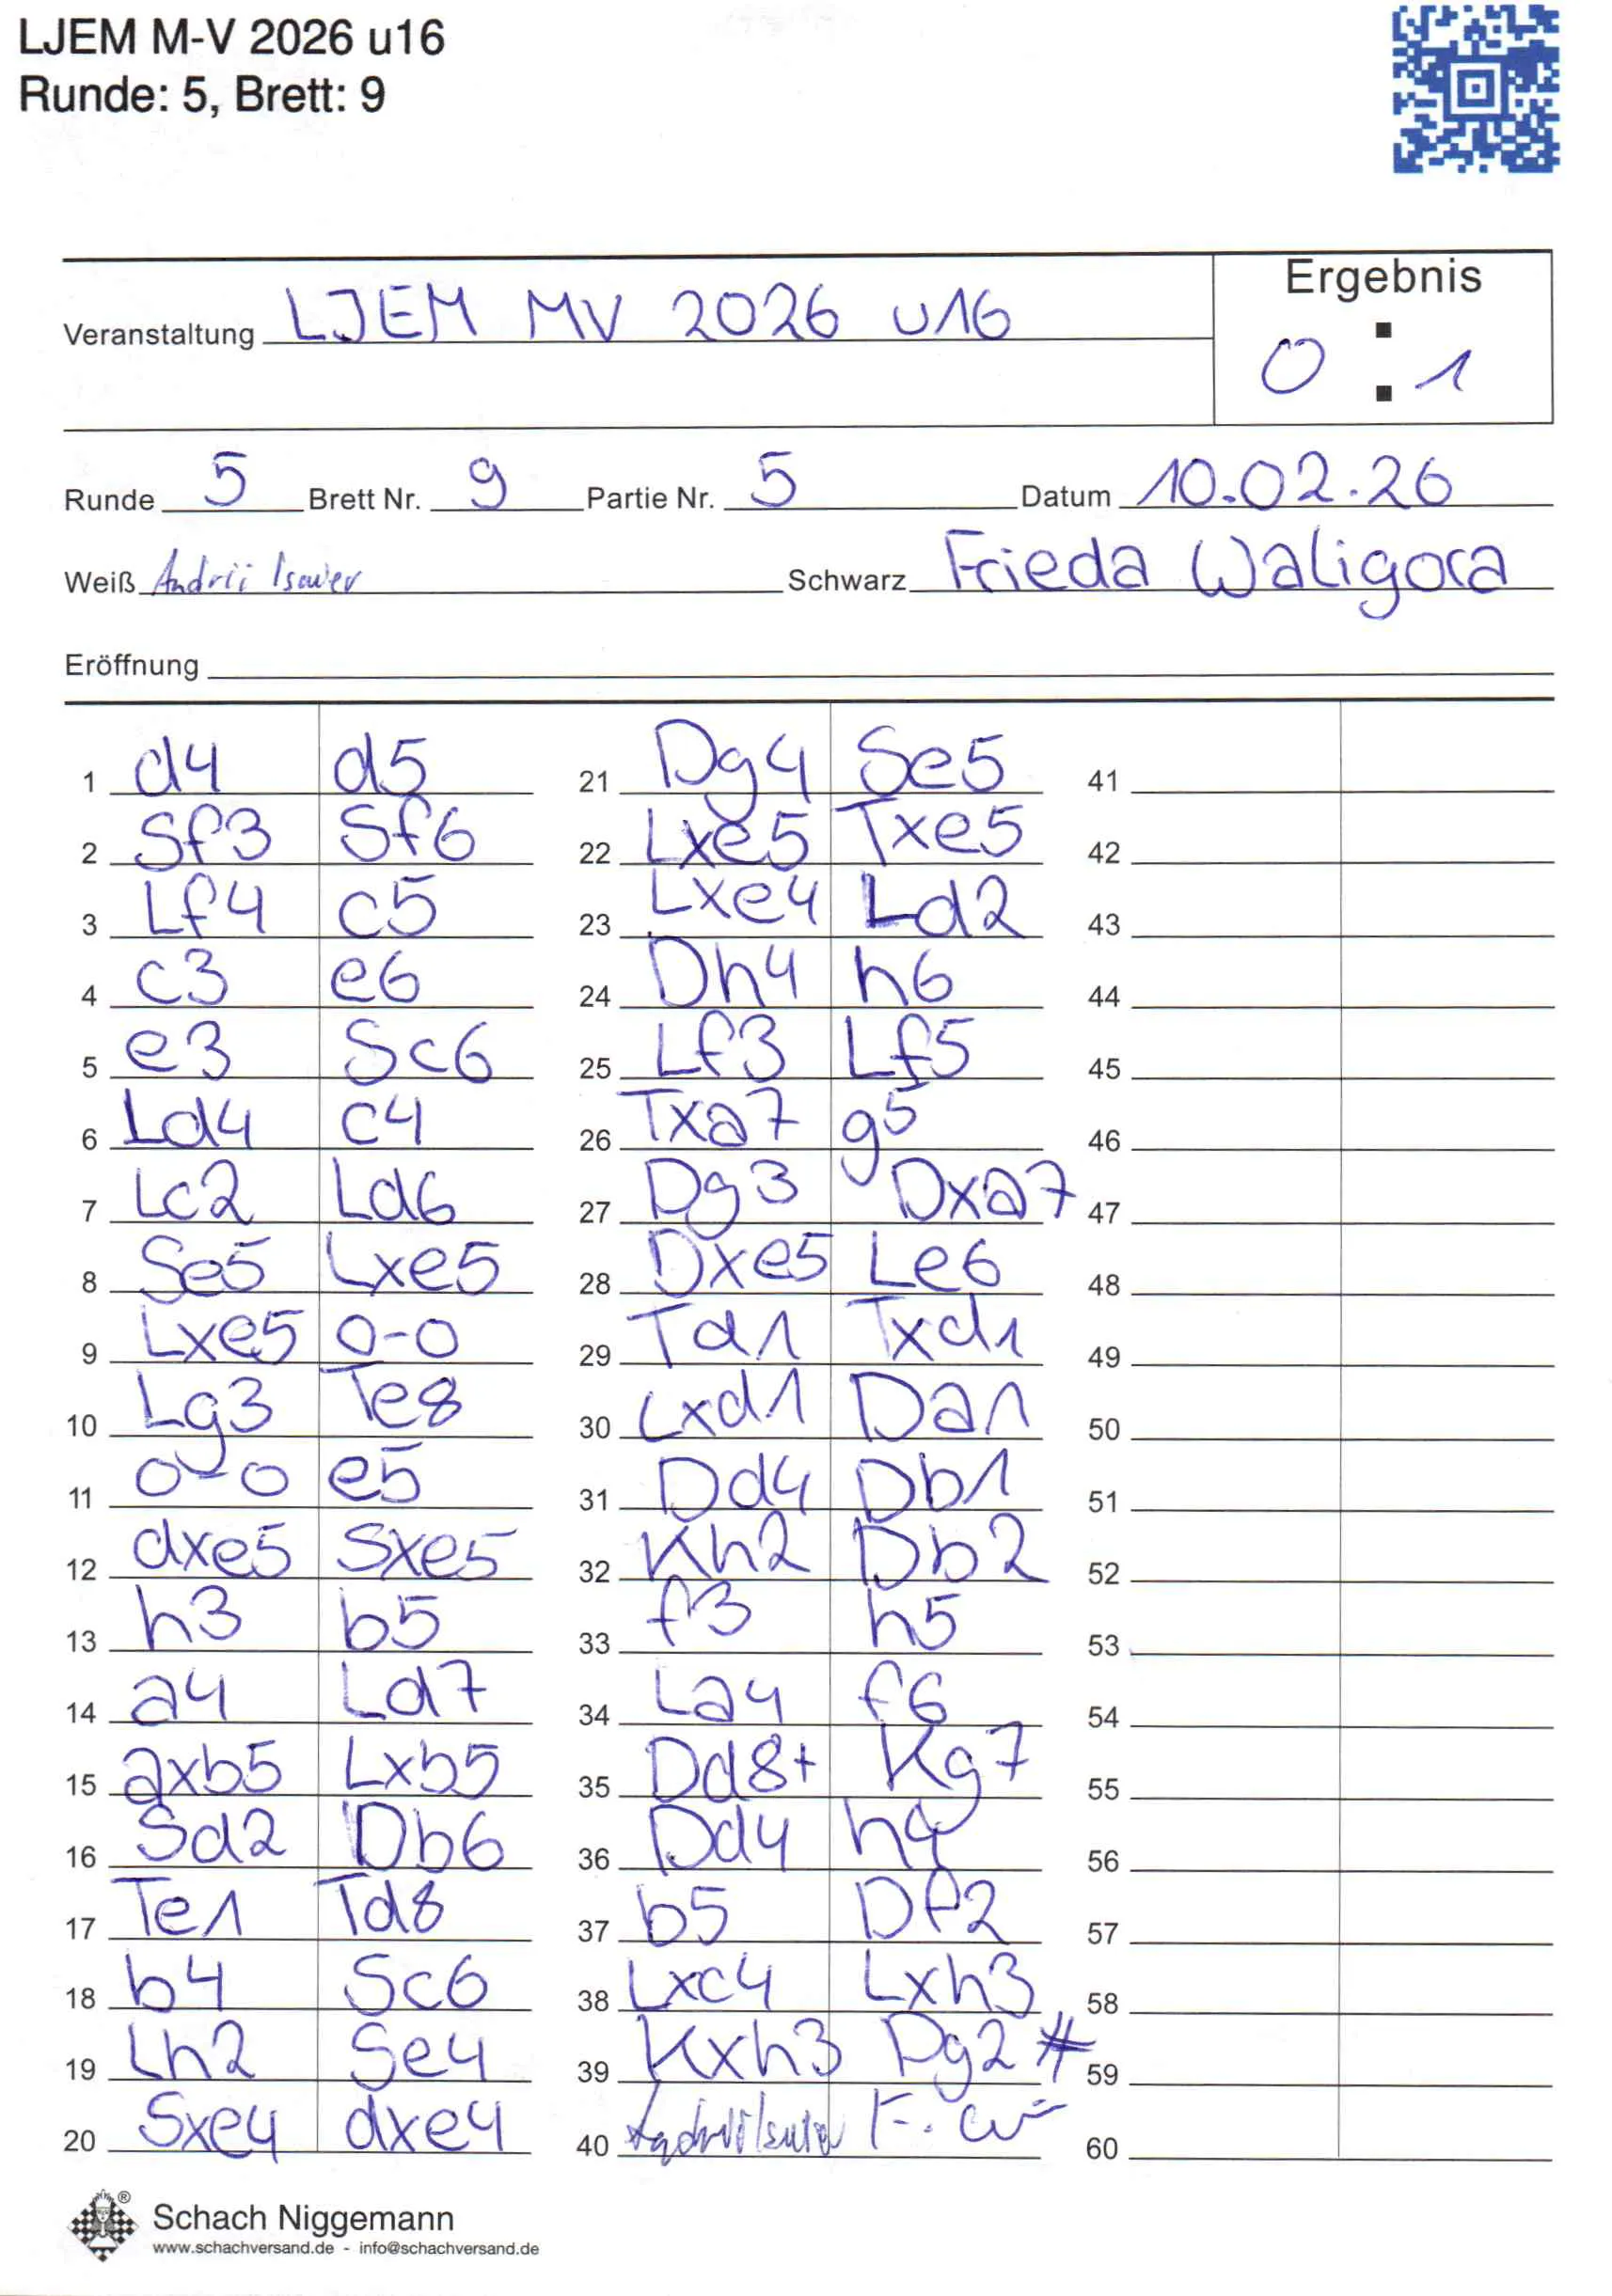 LJEM M-V 2026 u16
Runde: 5, Brett: 9
Ergebnis
Veranstaltung LJEM MV 2026 u16
0 : 1
Runde 5 Brett Nr. 9 Partie Nr. 5 Datum 10.02.26
Weiß Andrii Schwarz Frieda Waligora
Eröffnung
1 d4 d5 21 Dg4 Se5 41
2 Sf3 Sf6 22 Lxe5 Txe5 42
3 Lf4 c5 23 Lxe4 Ld2 43
4 c3 e6 24 Dh4 h6 44
5 e3 Sc6 25 Lf3 Lf5 45
6 Ld4 c4 26 Txa7 g5 46
7 Lc2 Ld6 27 Dg3 Dxa7 47
8 Se5 Lxe5 28 Dxe5 Le6 48
9 Lxe5 0-0 29 Td1 Txd1 49
10 Lg3 Te8 30 Lxd1 Da1 50
11 0-0 e5 31 Dd4 Db1 51
12 dxe5 Sxe5 32 Kh2 Db2 52
13 h3 b5 33 f3 h5 53
14 a4 Ld7 34 La4 f6 54
15 axb5 Lxb5 35 Dd8+ Kg7 55
16 Sd2 Db6 36 Dd4 h4 56
17 Te1 Td8 37 b5 Df2 57
18 b4 Sc6 38 Lxc4 Lxh3 58
19 Lh2 Se4 39 Kxh3 Dg2# 59
20 Sxe4 dxe4 40 F. 60
® Schach Niggemann
www.schachversand.de - info@schachversand.de